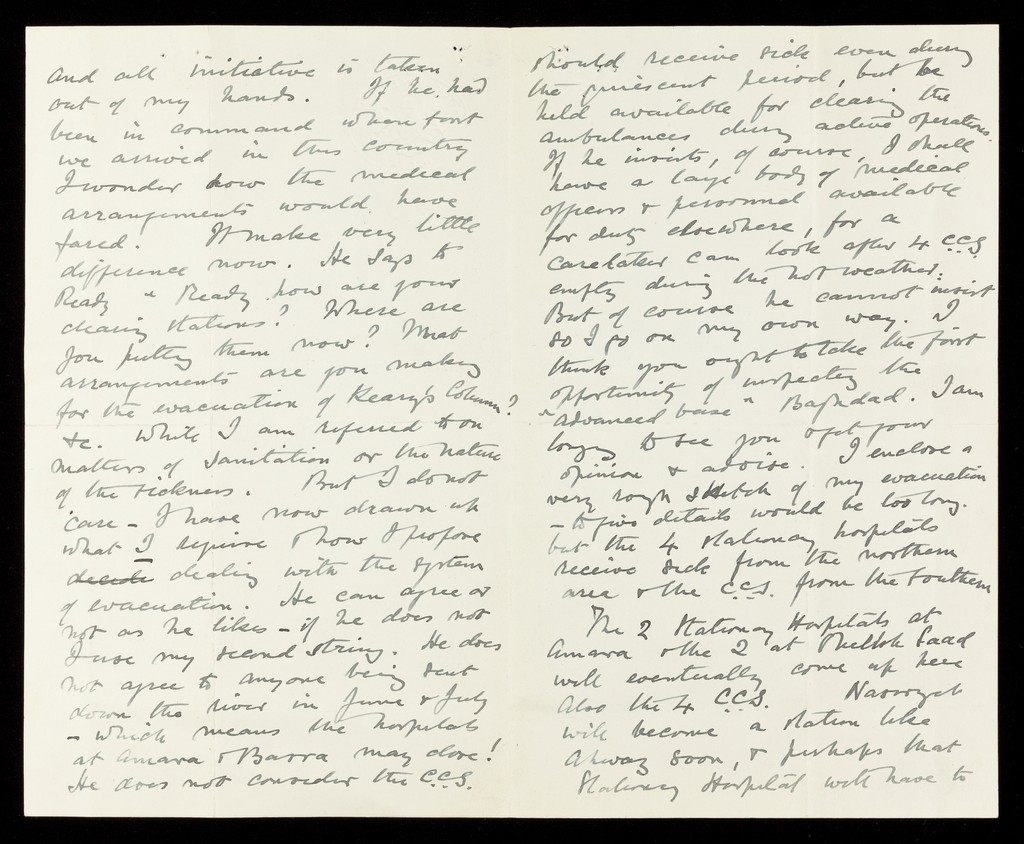 and all initiative is taken
out of my hands. If he had
been in command when first
we arrived in this country
I wonder how the medical
arrangements would have
fared. It make very little
difference now. He says to
Ready "Ready how are your
clearing stations? Where are
you putting them now? What
arrangements are you making
for the evacuation of Keary's Column?
&c. While I am referred to on
matters of sanitation or the nature
of the sickness. But I do not
care - I have now drawn up
what I require & how I propose
dealing with the system
of evacuation. He can agree or
not as he likes - if he does not
I use my second string. He does
not agree to anyone being sent
down the river in June & July
- which means the hospitals
at Amara & Basra may close!
He does not consider the C.C.S.
should receive sick even during
the quiescent period, but be
held available for clearing the
ambulances during active operations.
If he insists, of course, I shall
have a large body of medical
officers & personnel available
for duty elsewhere, for a
caretaker can look after 4 C.C.S
empty during the hot weather.
But of course he cannot insist
so I go on my own way. I
think you ought to take the first
opportunity of inspecting the
"advanced base" Baghdad. I am
longing to see you & get your
opinion & advise. I enclose a
very rough sketch of my evacuation
- to give details would be too long.
but the 4 stationary hospitals
receive sick from the northern
area & the C.C.S. from the southern
The 2 Stationary Hospitals at
Amara & the 2 at Sheikh Saad
will eventually come up here
Also the 4 C.C.S. Nasriyeh
will become a station like
Ahwaz soon, & perhaps that
Stationary Hospital will have to